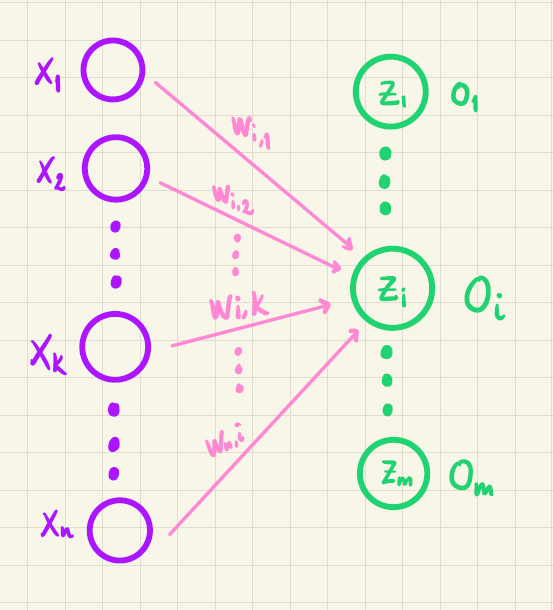 x₁
x₂
xₖ
xₙ
wᵢ,₁
wᵢ,₂
wᵢ,k
wₙᵢ
z₁ o₁
zᵢ Oᵢ
zₘ Oₘ